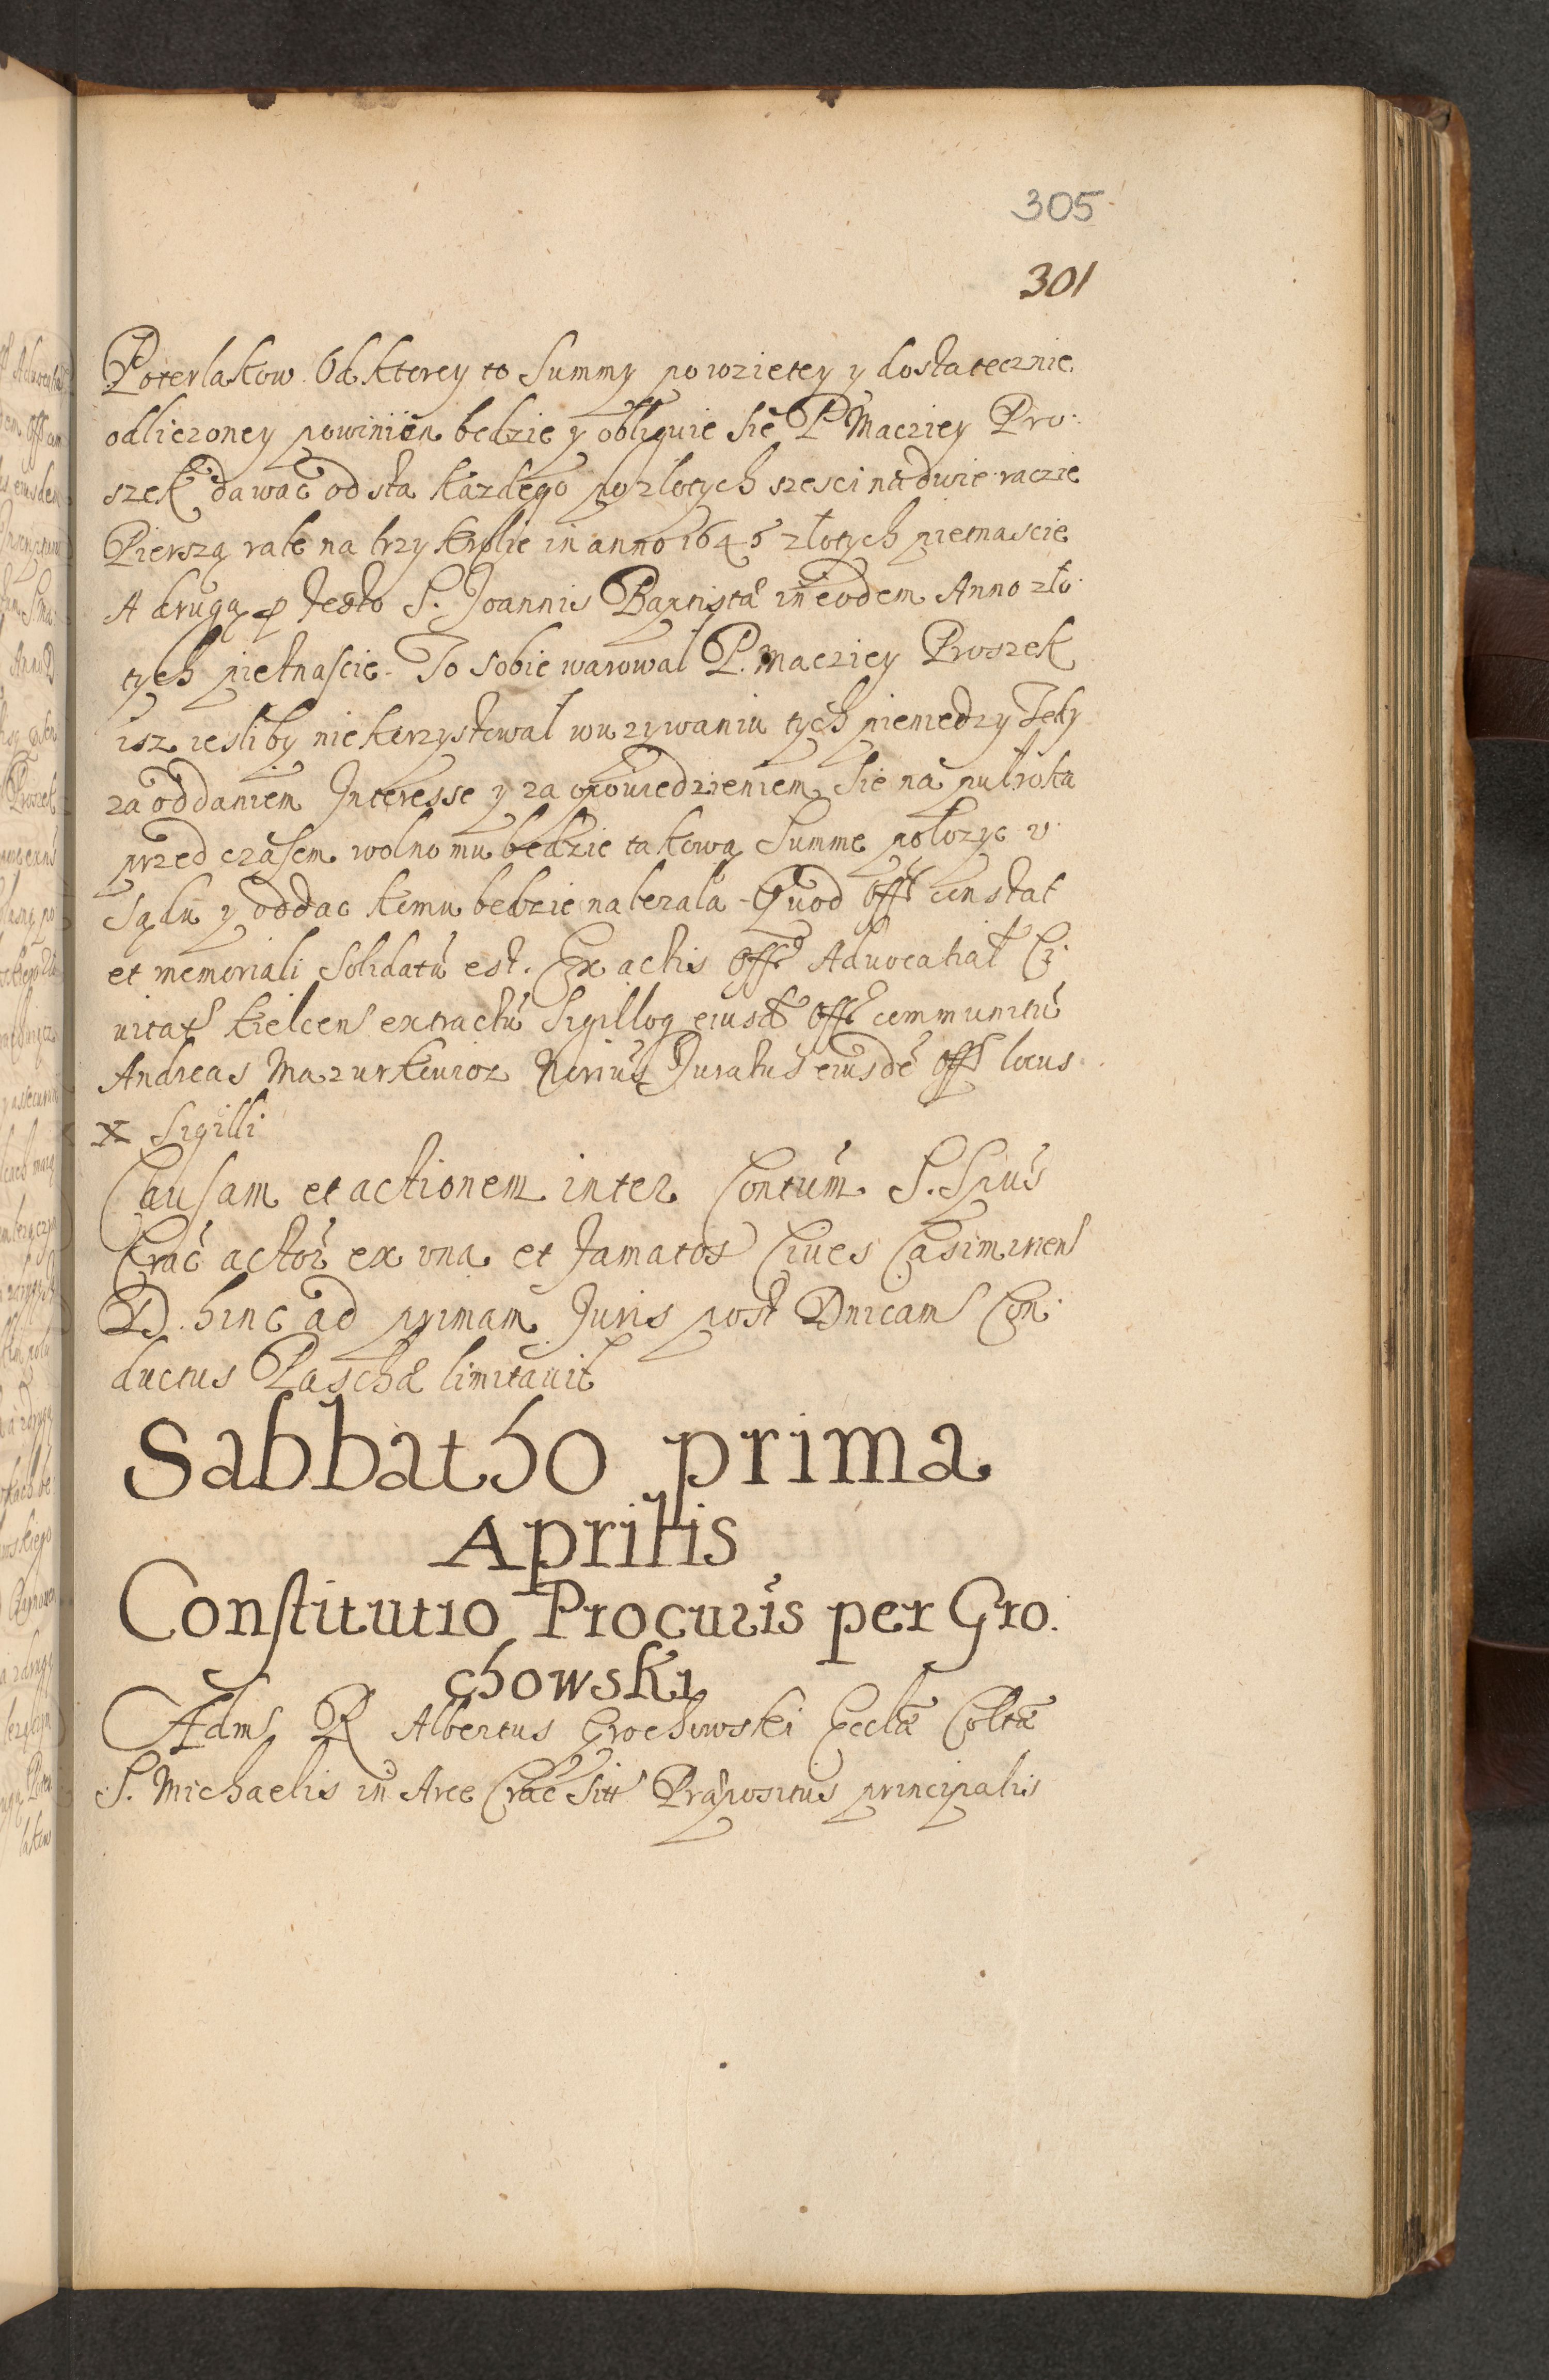 305
301
Poterlakow. Od ktorey to Summy powzietey y dostatecznie
odliczoney powinien bedzie y obliguie sie P Macziey Pro-
szek dawac od sta kazdego po zlotych szesci na dwie raczie
Pierszą rate na trzy krolie in anno 1646 złotych pietnascie
A drugą p festo S. Joannis Baptistæ in eodem Anno zło-
tych pietnascie. To sobie warowal P. Macziey Proszek
isz iesliby nie korzystował w uzywaniu tych pieniedzy Tedy
za oddaniem Interesse y za opowiedzieniem sie na pułroka
przed czasem wolno mu bedzie takową Summe położyc v
Sądu y oddac komu bedzie nalezala. Quod Offm constat
et memoriali solidatū est. Ex actis Offi Advocatial Ci-
vitatS Kielcens extractū Sigilloq eiusd Offi communitū
Andreas Mazurkowicz Norius Juratus eiusdē Offi locus
X Sigilli
Causam et actionem inter Contum S. Spūs
Crac actor ex una et Famatos Cives Casimiriens
R D. hinc ad primam Juris post Dnicam Con-
ductus Paschæ limitavit
Sabbatho prima
Aprilis
Constitutio Procuris per Gro-
chowski
Adms R Albertus Grochowski Ecclæ Coltæ
S. Michaelis in Arce Crac sitt Præpositus principalis